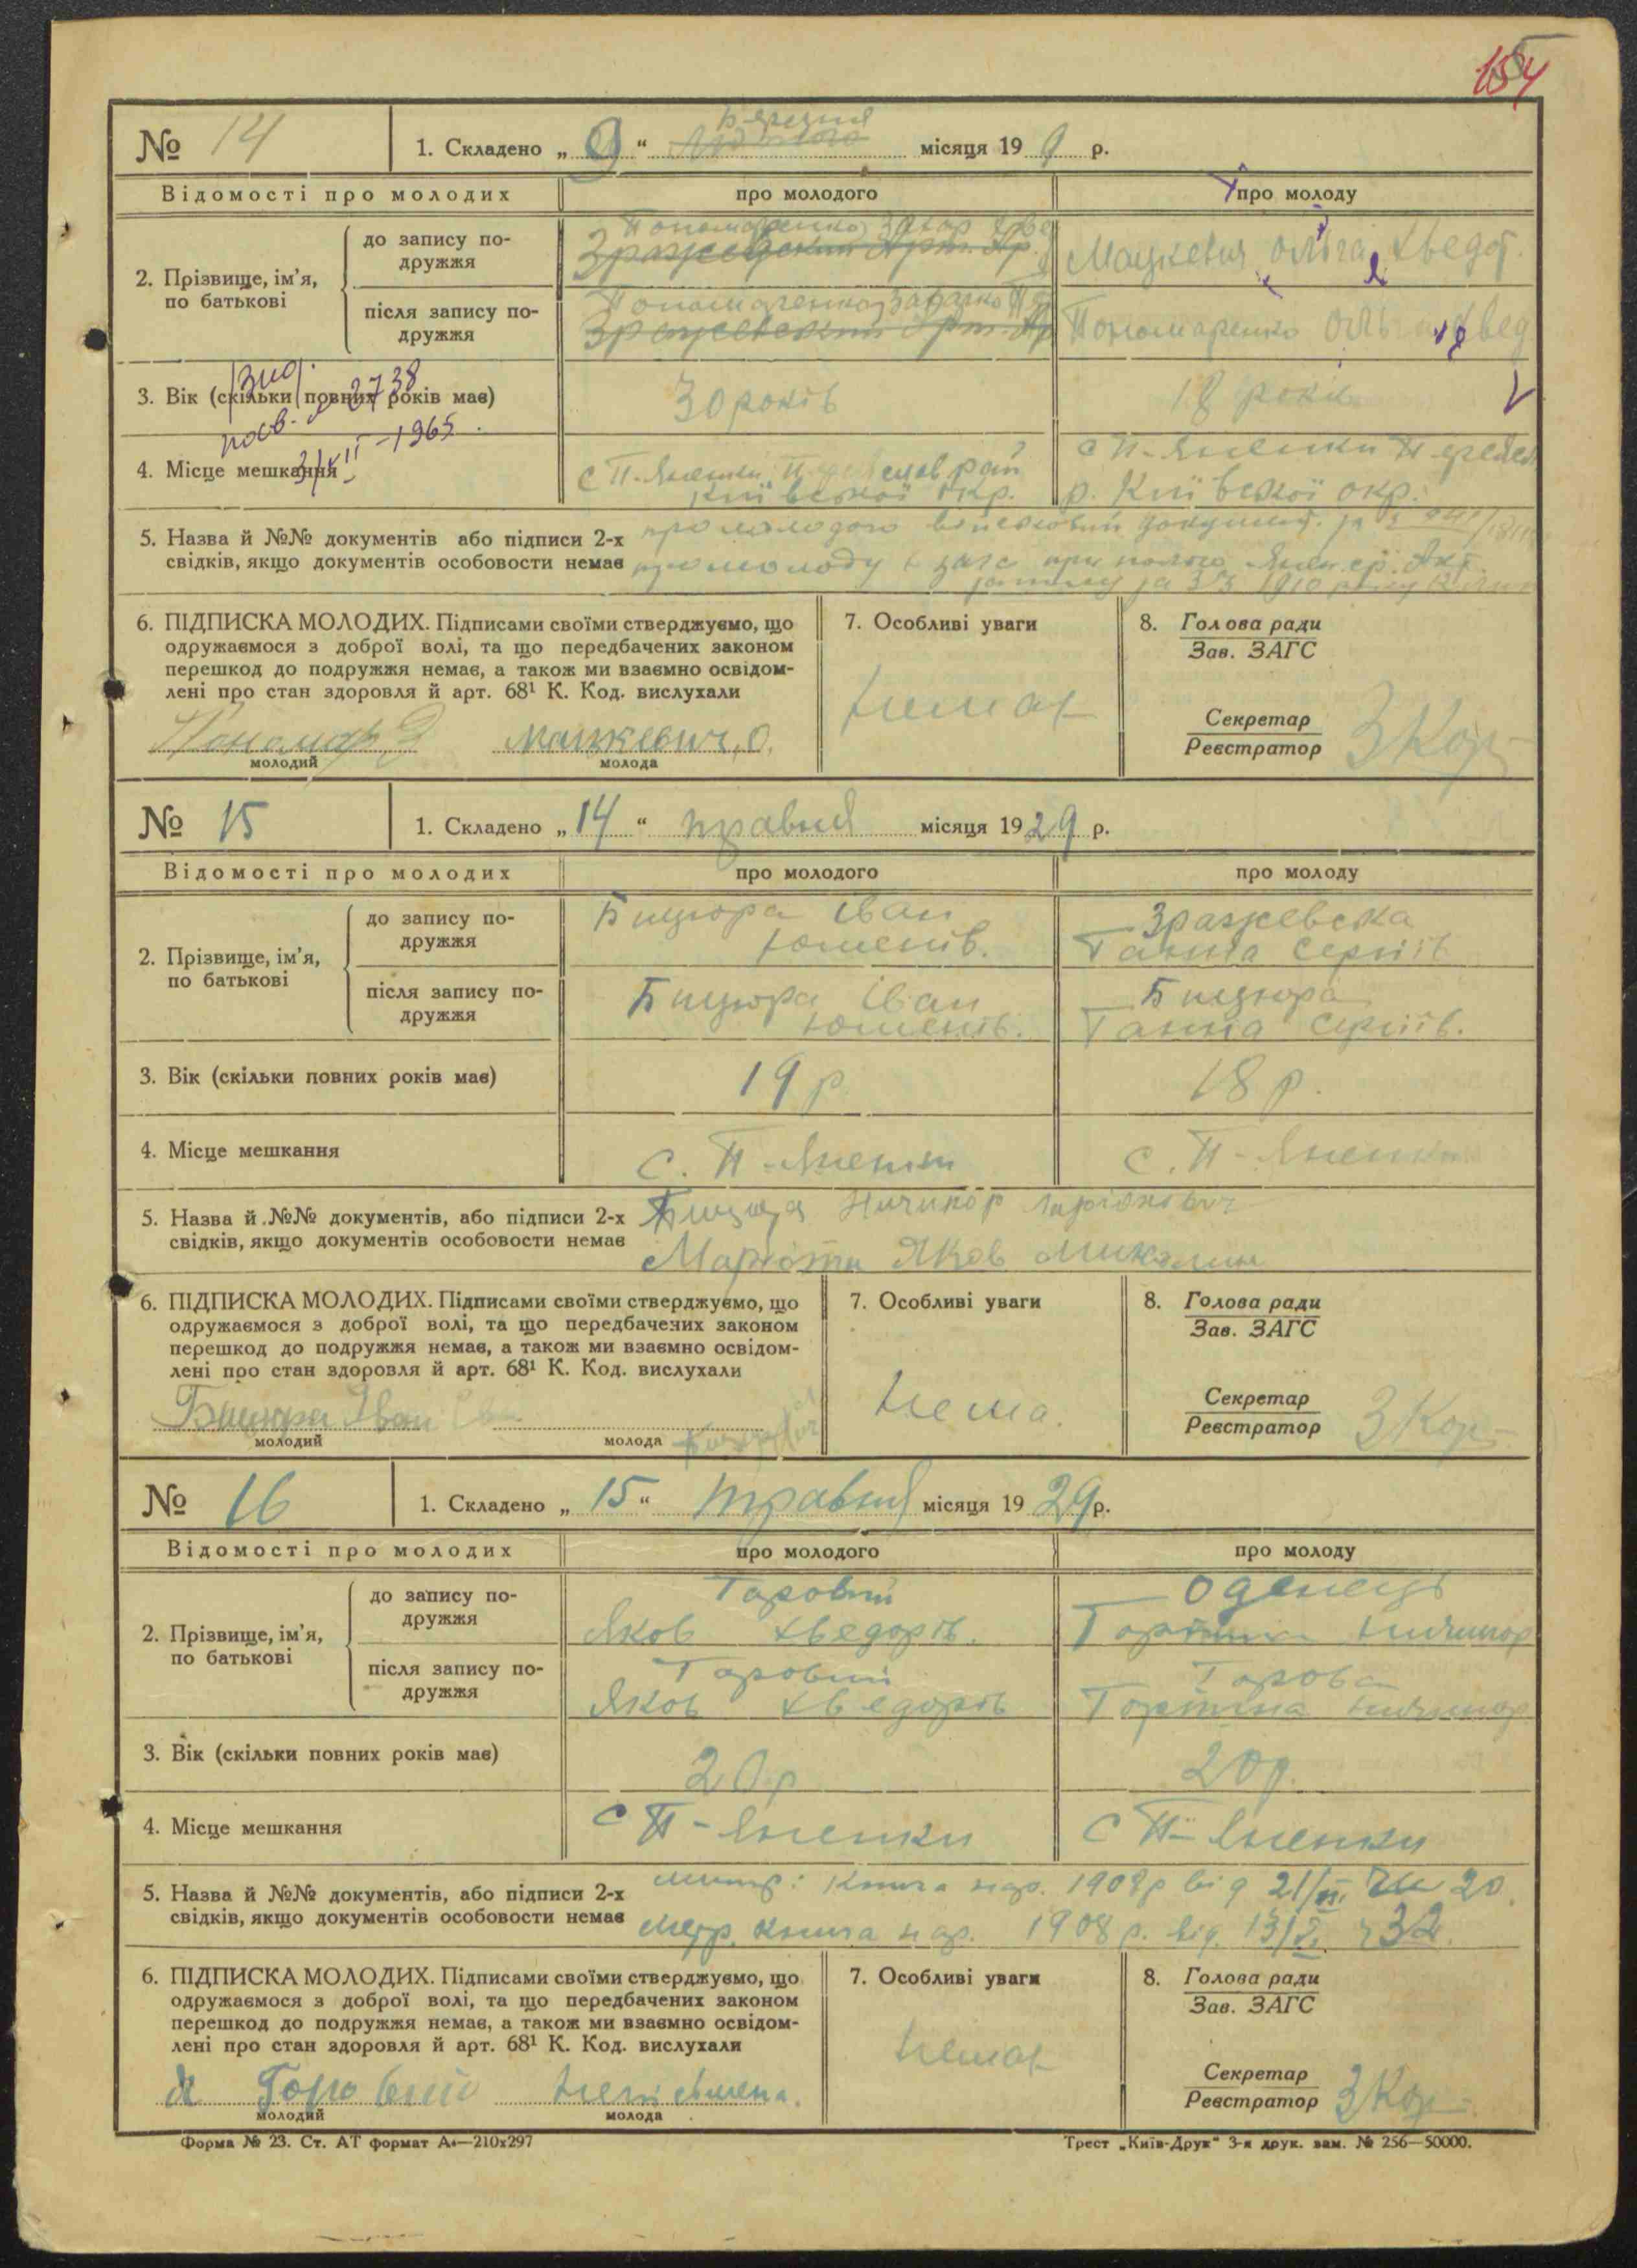 154
№ 14 1. Складено „ 9 “ Березня місяця 19 9 р.
Відомості про молодих про молодого про молоду
2. Прізвище, ім’я, по батькові
до запису подружжя Пономаренко Захар Мацкевич Ольга Хведот.
після запису подружжя Пономаренко Захарко Пономаренко Ольга Хвед
3. Вік (скільки повних років має) 30 років 18 років
Вид. посв. 2738
31/VII-1965
4. Місце мешкання с П-Яненки рай Київської окр. с П-Яненки р. Київської окр.
5. Назва й №№ документів або підписи 2-х про молодого військовий документ. за
свідків, якщо документів особовости немає про молоду 1910 року
6. ПІДПИСКА МОЛОДИХ. Підписами своїми стверджуємо, що
одружаємося з доброї волі, та що передбачених законом
перешкод до подружжя немає, а також ми взаємно освідом-
лені про стан здоровля й арт. 68¹ К. Код. вислухали
Мацкевич О.
молодий молода
7. Особливі уваги
Немає
8. Голова ради
Зав. ЗАГС
Секретар
Реєстратор
ЗКор
№ 15 1. Складено „ 14 “ травня місяця 1929 р.
Відомості про молодих про молодого про молоду
2. Прізвище, ім’я, по батькові
до запису подружжя Бицюра Іван Зражевська Ганна Сергіїв
після запису подружжя Бицюра Іван Бицюра Ганна Сергіїв.
3. Вік (скільки повних років має) 19 р 18 р.
4. Місце мешкання с. П-Яненки с. П-Яненки
5. Назва й №№ документів, або підписи 2-х Бицюра Ничипор
свідків, якщо документів особовости немає Яков
6. ПІДПИСКА МОЛОДИХ. Підписами своїми стверджуємо, що
одружаємося з доброї волі, та що передбачених законом
перешкод до подружжя немає, а також ми взаємно освідом-
лені про стан здоровля й арт. 68¹ К. Код. вислухали
Бицюра Іван
молодий молода
7. Особливі уваги
Нема.
8. Голова ради
Зав. ЗАГС
Секретар
Реєстратор
ЗКор
№ 16 1. Складено „ 15 “ травня місяця 1929 р.
Відомості про молодих про молодого про молоду
2. Прізвище, ім’я, по батькові
до запису подружжя Горовий Яков Хведорів. Оденець Горпина Ничипор
після запису подружжя Горовий Яков Хведорів Горова Горпина Ничипор
3. Вік (скільки повних років має) 20 р 20 р.
4. Місце мешкання с П-Яненки с П-Яненки
5. Назва й №№ документів, або підписи 2-х метр: Книга нар. 1908 р від 21/ 20.
свідків, якщо документів особовости немає метр. книга нар. 1908 р. від. 13/X. ч 32.
6. ПІДПИСКА МОЛОДИХ. Підписами своїми стверджуємо, що
одружаємося з доброї волі, та що передбачених законом
перешкод до подружжя немає, а також ми взаємно освідом-
лені про стан здоровля й арт. 68¹ К. Код. вислухали
Я Горовий Неписьмена.
молодий молода
7. Особливі уваги
Немає
8. Голова ради
Зав. ЗАГС
Секретар
Реєстратор
ЗКор
Форма № 23. Ст. АТ формат А4—210x297 Трест „Київ-Друк“ 3-я друк. зам. № 256—50000.